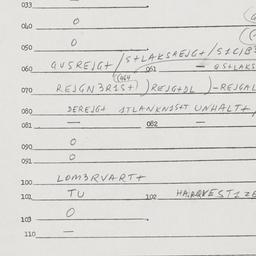 033 —
040 O
050 O
060 QVSREJG+ /S+LAKSREJG+/S1C1B
061 — QS+LAKS
070 REJGN3R1S+)REJG+DL )-REJGAL
080 DEREJG+ 1TLANKN1S+T UNHALT+
081 — 082 —
090 O
091 O
100 LOM3RVART+
101 TU 102 HARQVEST1ZE
103 O
110 —